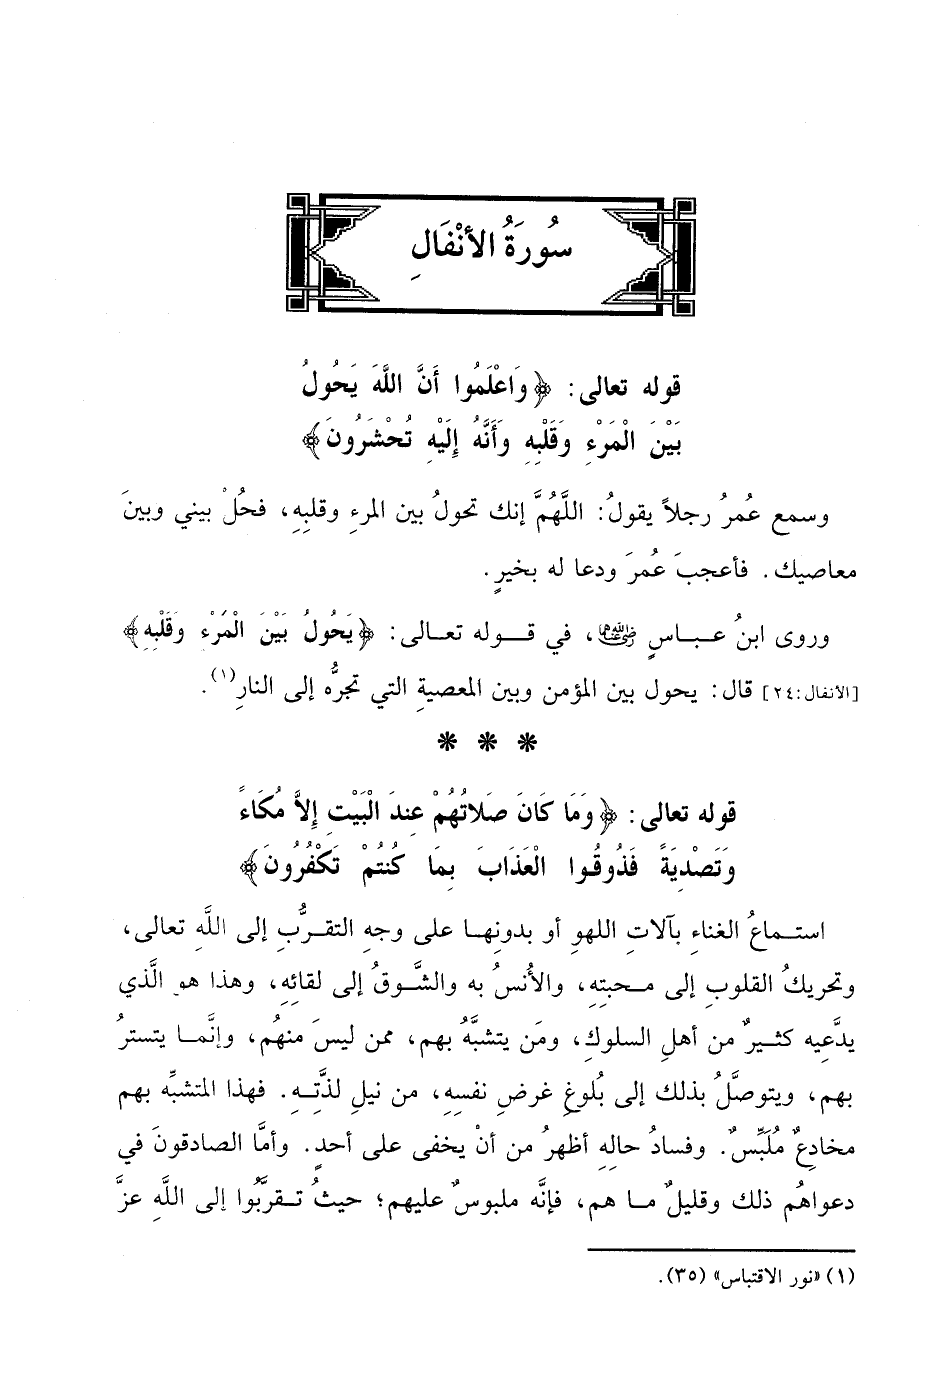 سُورَةُ الأَنْفَالِ
قوله تعالى: ﴿وَاعْلَمُوا أَنَّ اللَّهَ يَحُولُ
بَيْنَ الْمَرْءِ وَقَلْبِهِ وَأَنَّهُ إِلَيْهِ تُحْشَرُونَ﴾
وسمع عُمرُ رجلاً يقولُ: اللَّهُمَّ إنك تحولُ بين المرءِ وقلبِهِ، فحُلْ بيني وبينَ
معاصيك. فأعجبَ عُمرَ ودعا له بخيرٍ.
وروى ابنُ عبـاسٍ ﵄، في قـوله تعـالى: ﴿يَحُولُ بَيْنَ الْمَرْءِ وَقَلْبِهِ﴾
[الأنفال:٢٤] قال: يحول بين المؤمن وبين المعصيةِ التي تجرُّه إلى النارِ(١).
* * *
قوله تعالى: ﴿وَمَا كَانَ صَلاتُهُمْ عِندَ الْبَيْتِ إِلاَّ مُكَاءً
وَتَصْدِيَةً فَذُوقُوا الْعَذَابَ بِمَا كُنتُمْ تَكْفُرُونَ﴾
استـماعُ الغناءِ بآلاتِ اللهوِ أو بدونِهـا على وجهِ التقرُّبِ إلى اللَّهِ تعالى،
وتحريكُ القلوبِ إلى محبتِهِ، والأُنسُ به والشَّوقُ إلى لقائِهِ، وهذا هو الَّذي
يدَّعيه كثـيرٌ من أهلِ السلوكِ، ومَن يتشبَّهُ بهم، ممن ليسَ منهُم، وإنَّمـا يتسترُ
بهم، ويتوصَّلُ بذلك إلى بُلوغِ غرضِ نفسِهِ، من نيلِ لذَّتِـهِ. فهذا المتشبِّه بهم
مخادِعٌ مُلَبِّسٌ. وفسادُ حالِهِ أظهرُ من أنْ يخفى على أحدٍ. وأمَّا الصادقونَ في
دعواهُم ذلك وقليلٌ مـا هم، فإنَّه ملبوسٌ عليهم؛ حيثُ تـقرَّبُوا إلى اللَّهِ عزَّ
(١) «نور الاقتباس» (٣٥).